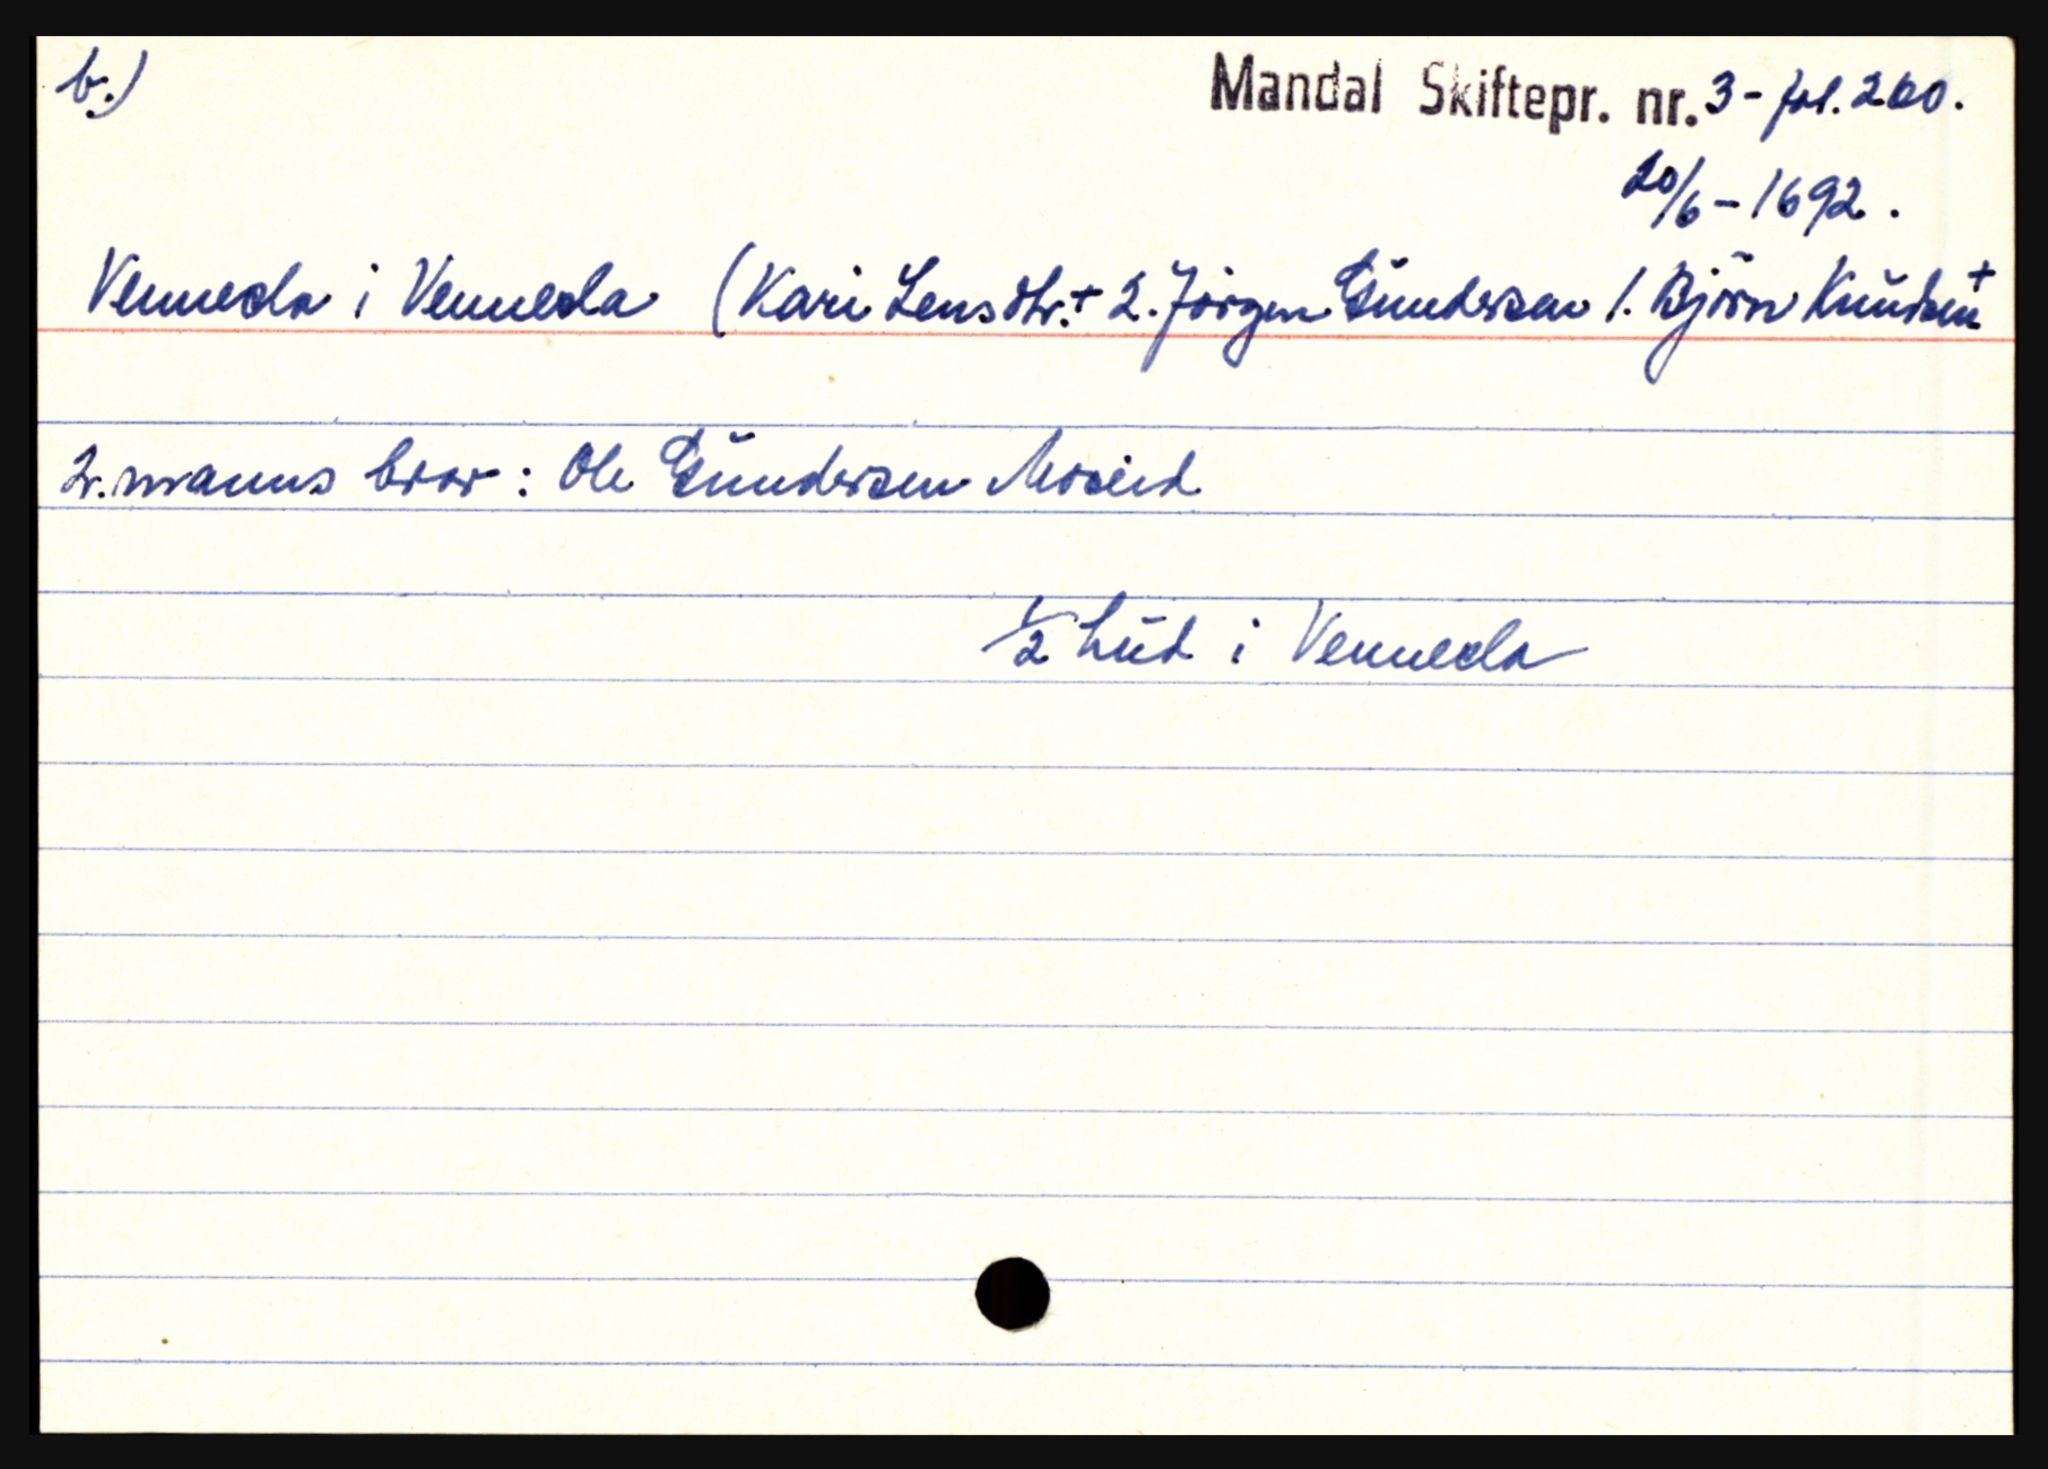 b.)
Mandal Skiftepr. nr. 3 - fol. 260.
20/6 - 1692.
Vennesla i Vennesla (Kari Jensdtr. + 2. Jörgen Gundersen 1. Björn Knudsen +
2. manns bror: Ole Gundersen Moseid
1/2 hud i Vennesla